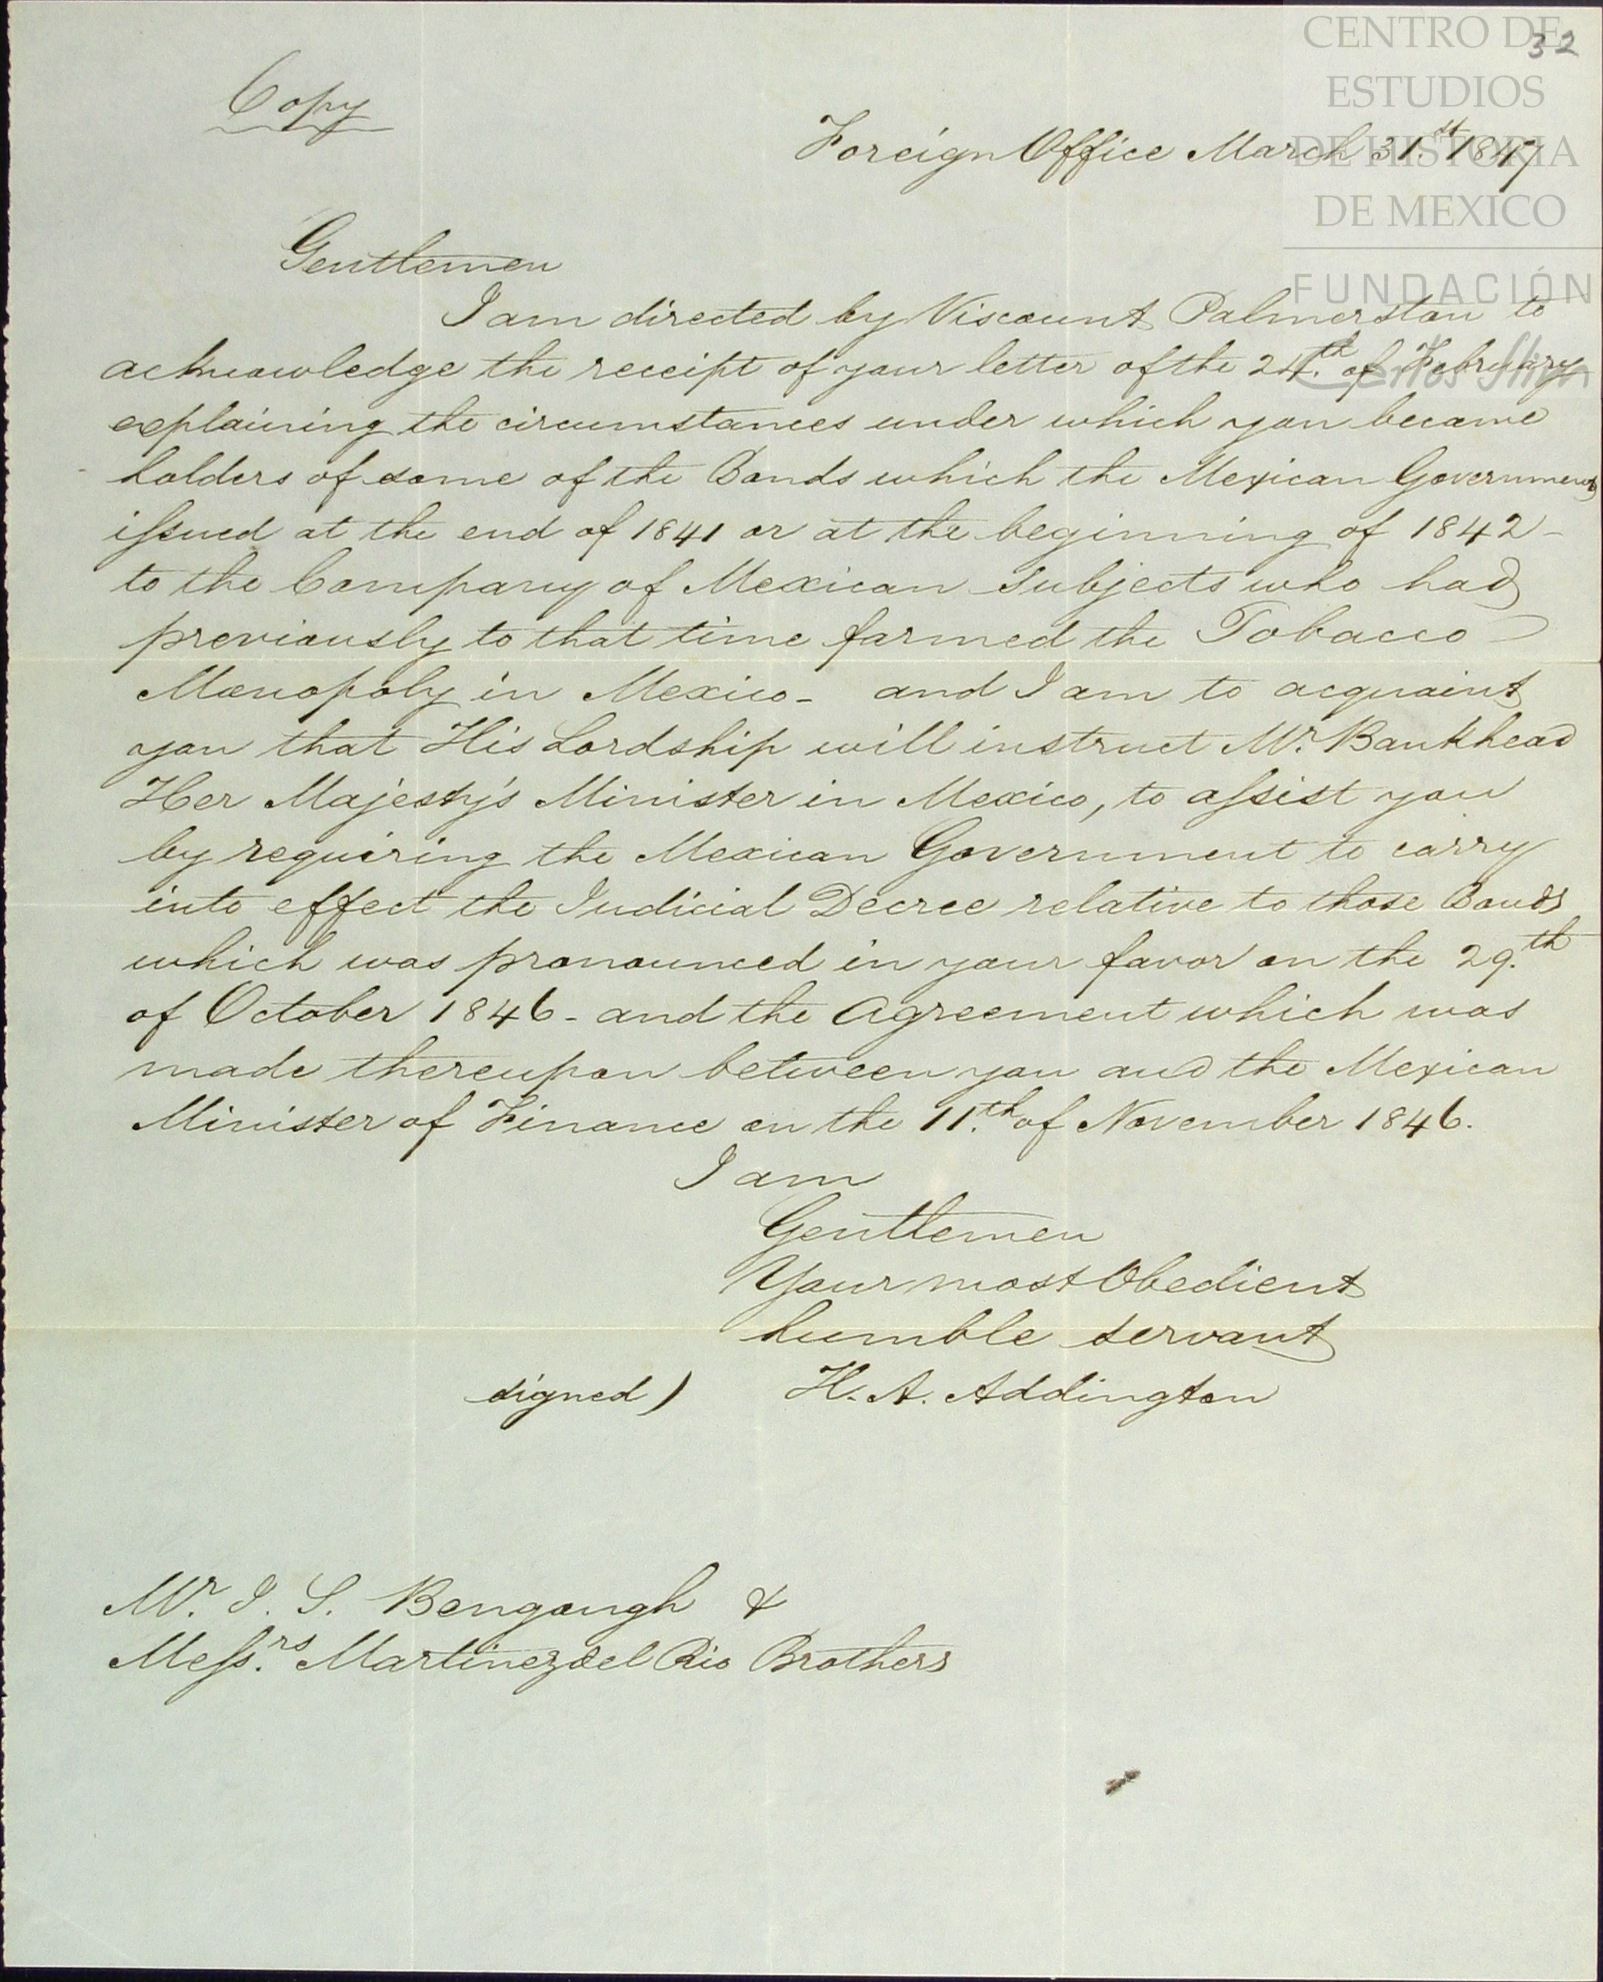 CENTRO DE
ESTUDIOS
DE HISTORIA
DE MEXICO
FUNDACIÓN
Carlos Slim
32
Copy
Foreign Office March 31.st 1847
Gentlemen
I am directed by Viscount Palmerston to
acknowledge the receipt of your letter of the 24.th of February
explaining the circumstances under which you became
holders of some of the Bonds which the Mexican Government
issued at the end of 1841 or at the beginning of 1842 -
to the Company of Mexican subjects who had
previously to that time farmed the Tobacco
Monopoly in Mexico - and I am to acquaint
you that His Lordship will instruct Mr. Bankhead
Her Majesty's Minister in Mexico, to assist you
by requiring the Mexican Government to carry
into effect the Judicial Decree relative to those Bonds
which was pronounced in your favor on the 29.th
of October 1846 - and the Agreement which was
made thereupon between you and the Mexican
Minister of Finance on the 11.th of November 1846.
I am
Gentlemen
Your most Obedient
humble servant
signed) H. A. Addington
Mr. J. S. Bengough &
Messrs. Martinez del Rio Brothers